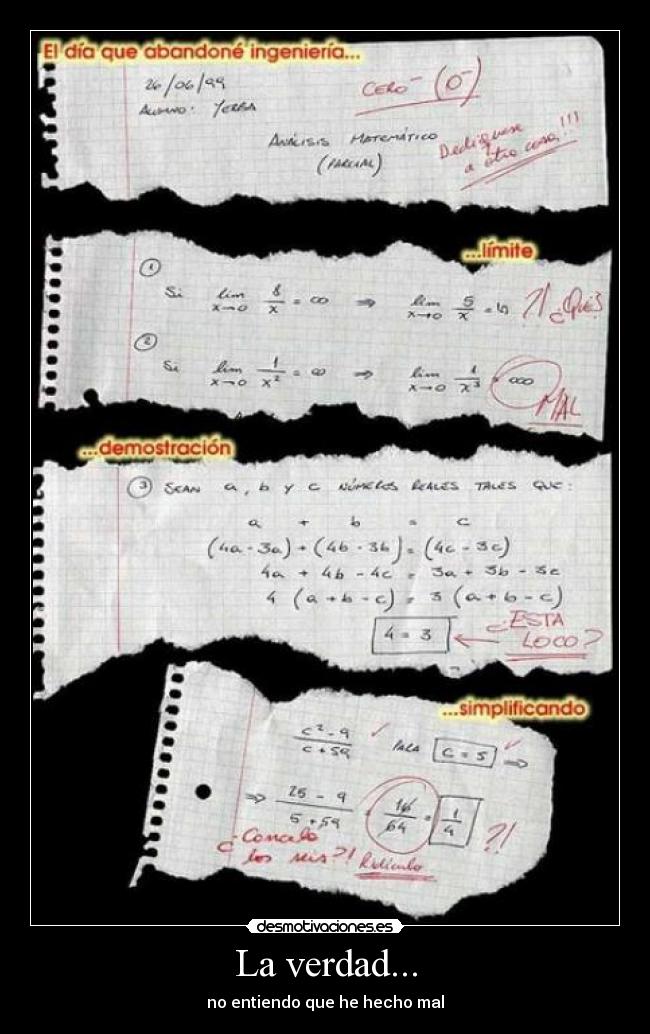 El día que abandoné ingeniería...
26/06/99
CERO⁻ (0⁻)
ALUMNO: YERBA
ANÁLISIS MATEMÁTICO
(PARCIAL)
Dedíquese
a otra cosa!!!
...límite
①
Si lim x→0 8/x = ∞ ⇒ lim x→0 5/x = ㄣ ?! ¿QUÉ?
②
Si lim x→0 1/x² = ∞ ⇒ lim x→0 1/x³ = ∞
MAL
...demostración
③ SEAN a, b Y c NÚMEROS REALES TALES QUE:
a + b = c
(4a - 3a) + (4b - 3b) = (4c - 3c)
4a + 4b - 4c = 3a + 3b - 3c
4 (a + b - c) = 3 (a + b - c)
4 = 3
¿ESTA
LOCO?
...simplificando
c² - 9 / c + 59 PARA c = 5 ⇒
⇒ 25 - 9 / 5 + 59 = 16 / 64 = 1 / 4 ?!
¿Cancela
los seis?! Ridículo
desmotivaciones.es
La verdad...
no entiendo que he hecho mal